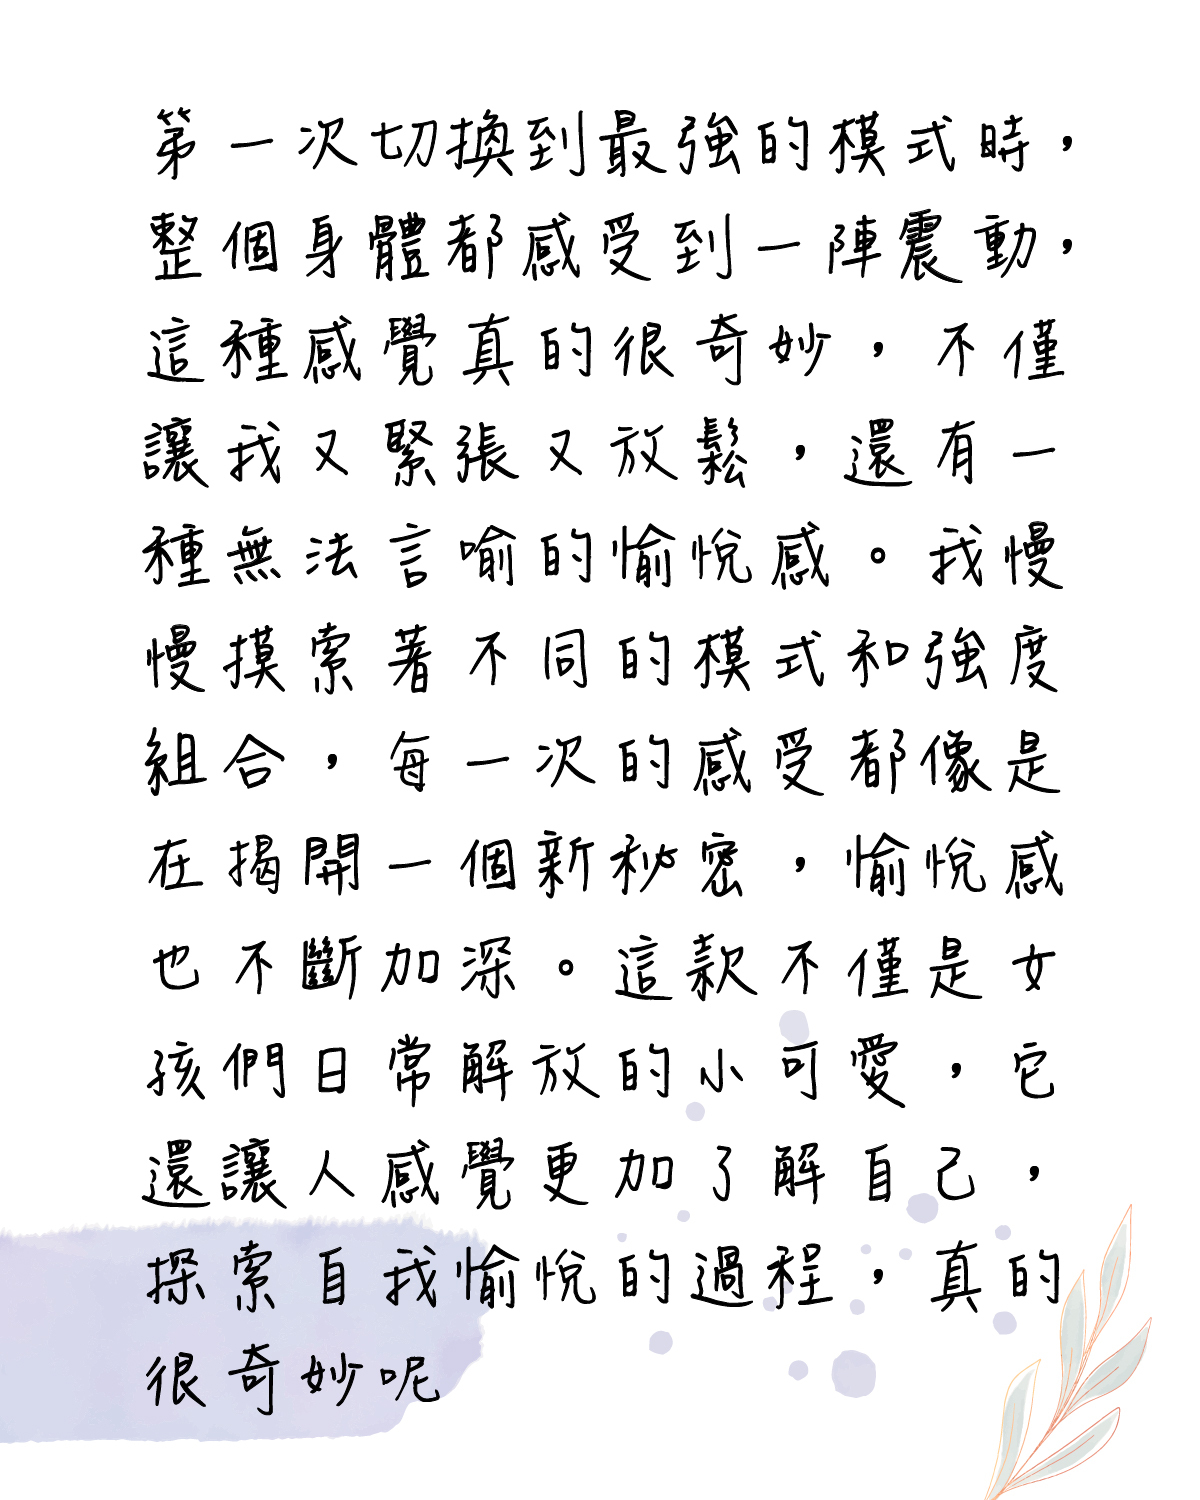 第一次切換到最強的模式時，
整個身體都感受到一陣震動，
這種感覺真的很奇妙，不僅
讓我又緊張又放鬆，還有一
種無法言喻的愉悅感。我慢
慢摸索著不同的模式和強度
組合，每一次的感受都像是
在揭開一個新秘密，愉悅感
也不斷加深。這款不僅是女
孩們日常解放的小可愛，它
還讓人感覺更加了解自己，
探索自我愉悅的過程，真的
很奇妙呢